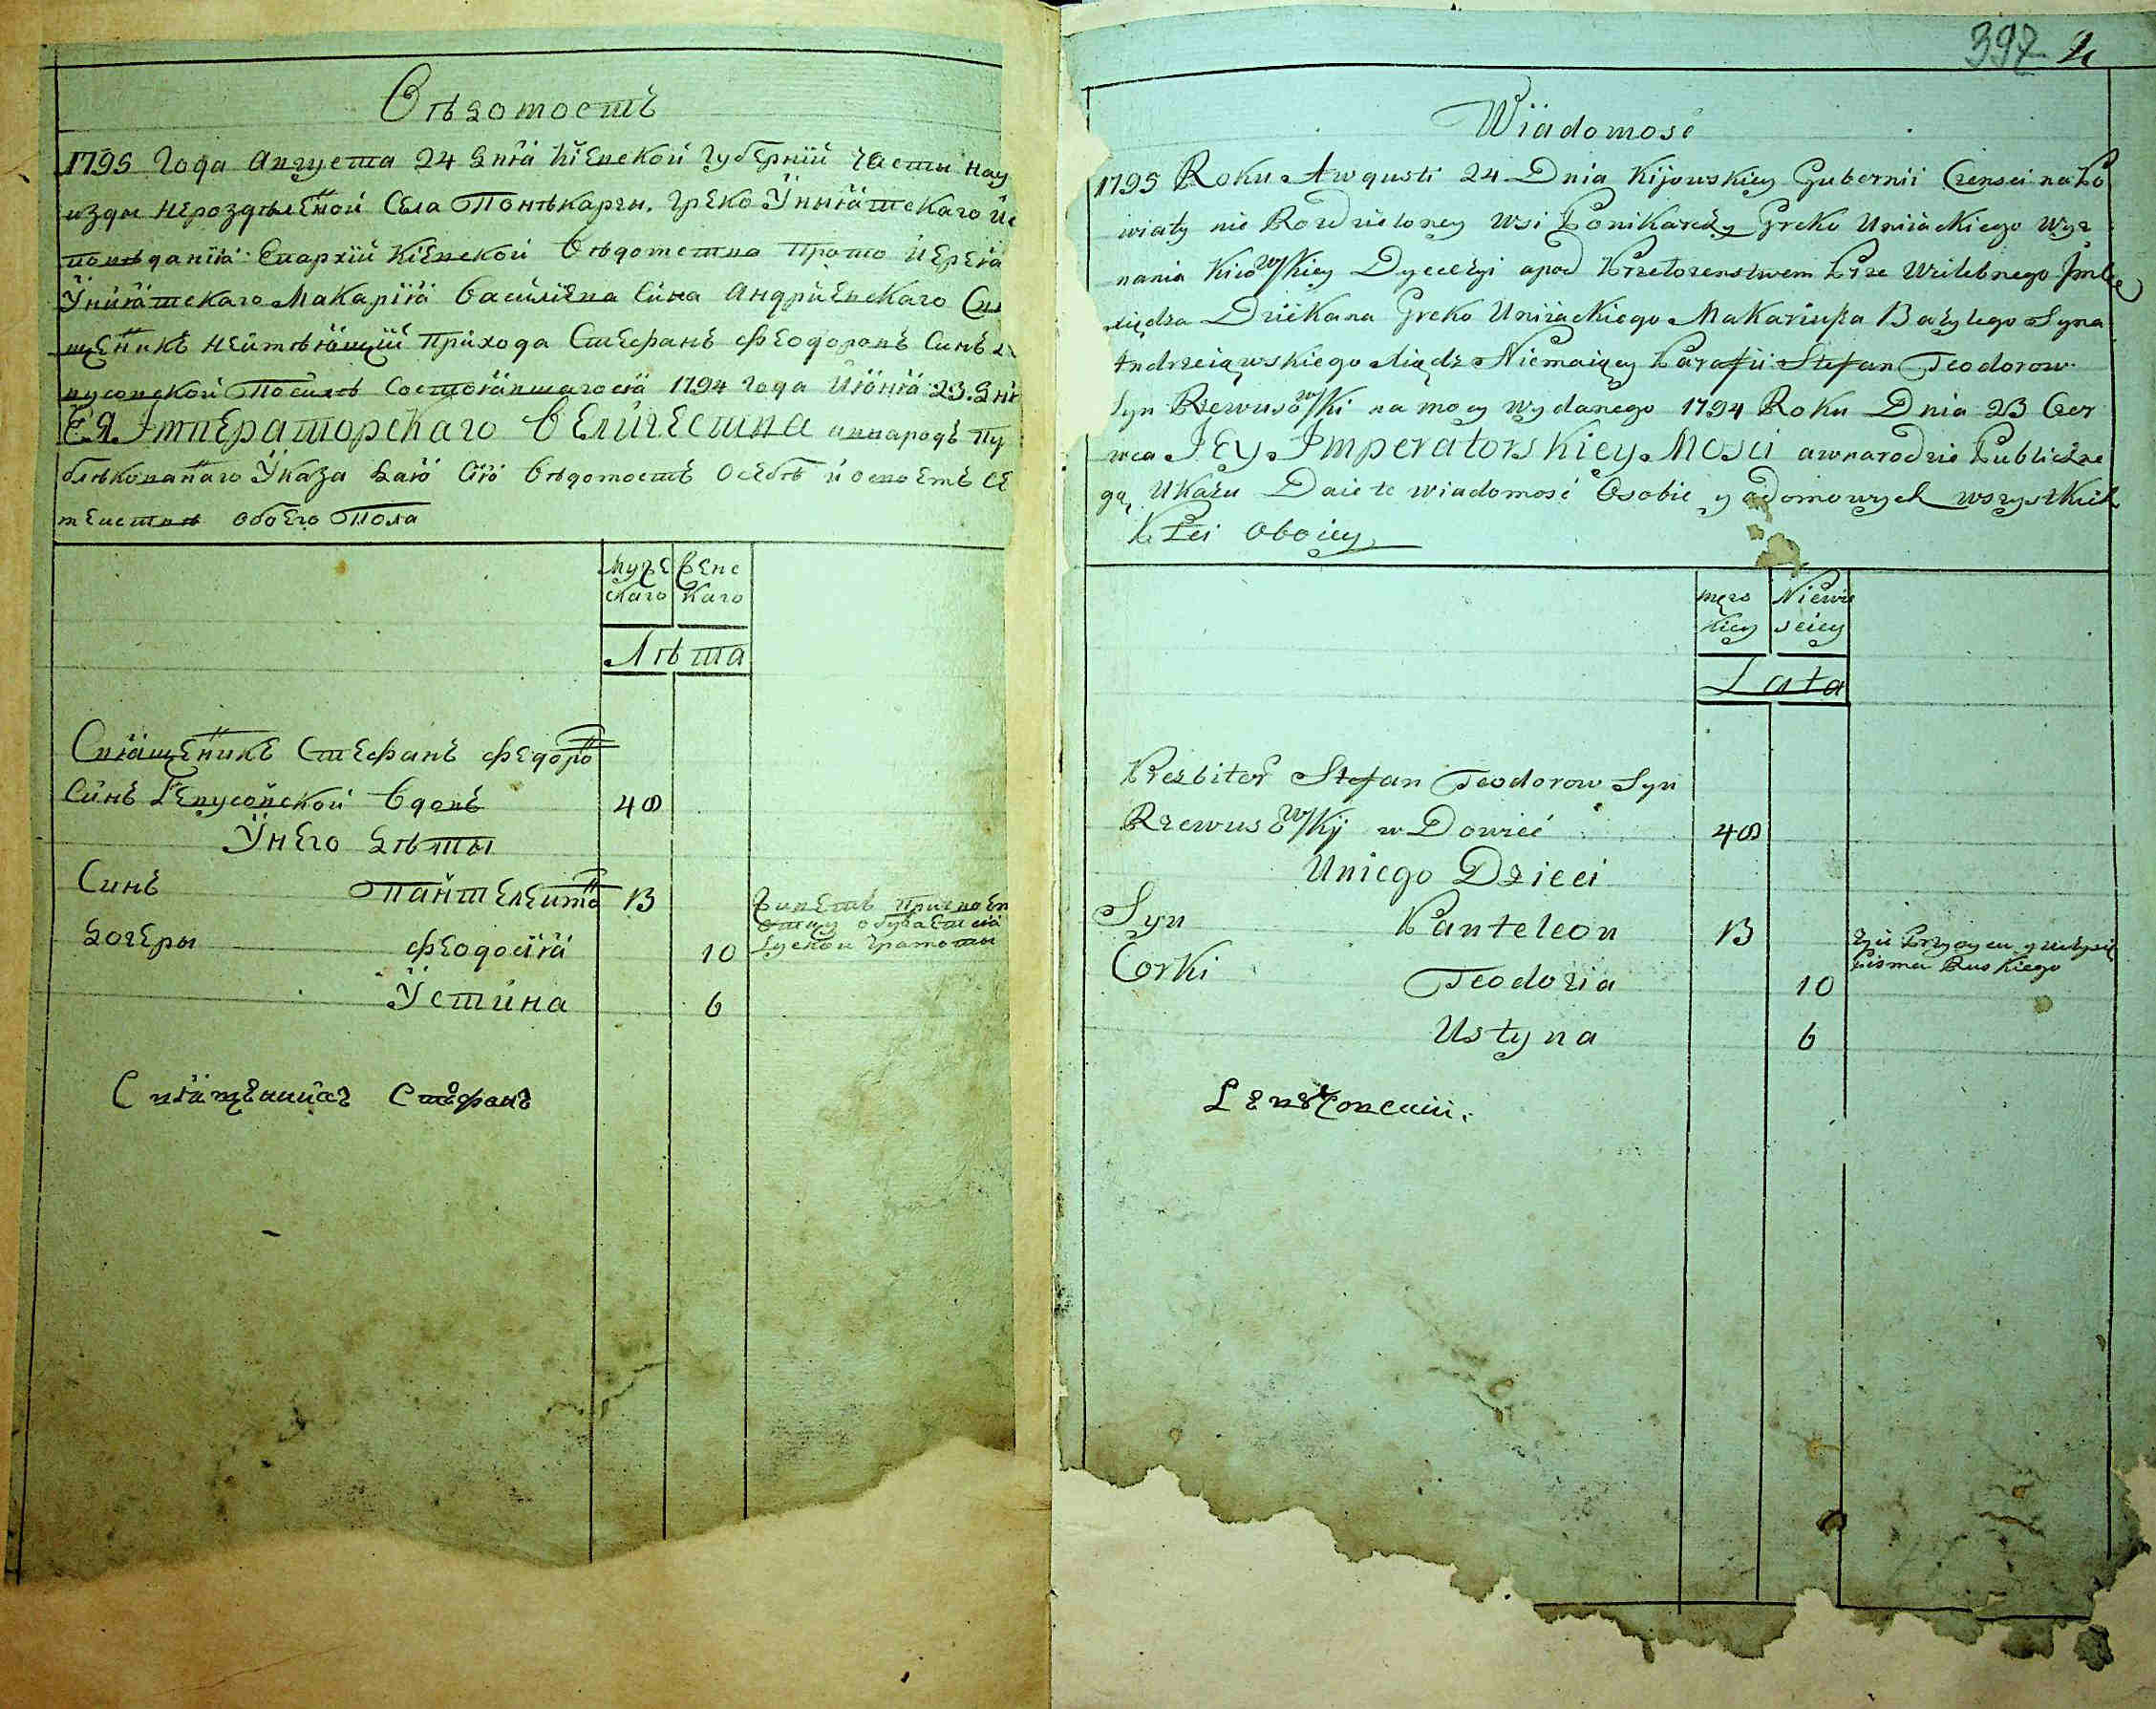 Вѣдомость
1795 Года Августа 24 дня Кіевской Губерніи Части на у
изды нероздѣленой Села Понѣкарчы. Греко Унѣятскаго Ис
повѣданія Епархіи Кіевской Вѣдомства Прото Иерея
Уніятскаго Макарія Василіева Сина Андріевскаго Свя
щеникъ неимѣющій прихода Стефанъ Феодоровъ Синъ
вусовской Посилѣ Состоявшагося 1794 года Июня 23. Дня
Ея Императорскаго Величества внародъ Пу
блѣкованаго Указа даю Сію Вѣдомость о себѣ и о своемъ Се
мействѣ обоего Пола
Муже
скаго
Женс
каго
Лѣта
Священикъ Стефанъ Федоро
Синъ Ревусовской Вдовъ 48
У него дѣты
Синъ Пантелеимо 13
дочеры Феодосія 10
Живетъ при
отцу обучается
Руской грамоты
Устина 6
Священникъ Стефанъ
397 2
Wiadomosć
1795 Roku Awgusti 24 Dnia Kijowskiey Gubernii Czensci na Po
wiaty nie Rozdzieloney Wsi Ponikarczy Greko Uniiackiego Wyz
nania Kiiowskiey Dyecezyi a pod Przełozenstwem Prze Wilebnego Jmc
xiędza Dziekana Greko Uniiackiego Makariusza Bazylego Syna
Andrzeiąwskiego Xiądz Niemaiący Parafii Stefan Teodorow
Syn Rzewusowski na mocy wydanego 1794 Roku Dnia 23 Czer
wca JEy Imperatorskiey Mosci awnarodzie Publiczne
gą Ukazu Daie te wiadomosć Osobie y adomowych wszystkich
Płci Oboiey
męzs
kiey
Niewie
sciey
Lata
Prezbiter Stefan Teodorow Syn
Rzewusowskÿ w Dowieć 48
Uniego Dzieci
Syn Panteleon 13
Corki Teodozia 10
zyie Przy oycu y uczysię
Pisma Ruskiego
Ustyna 6
Ревусовский.